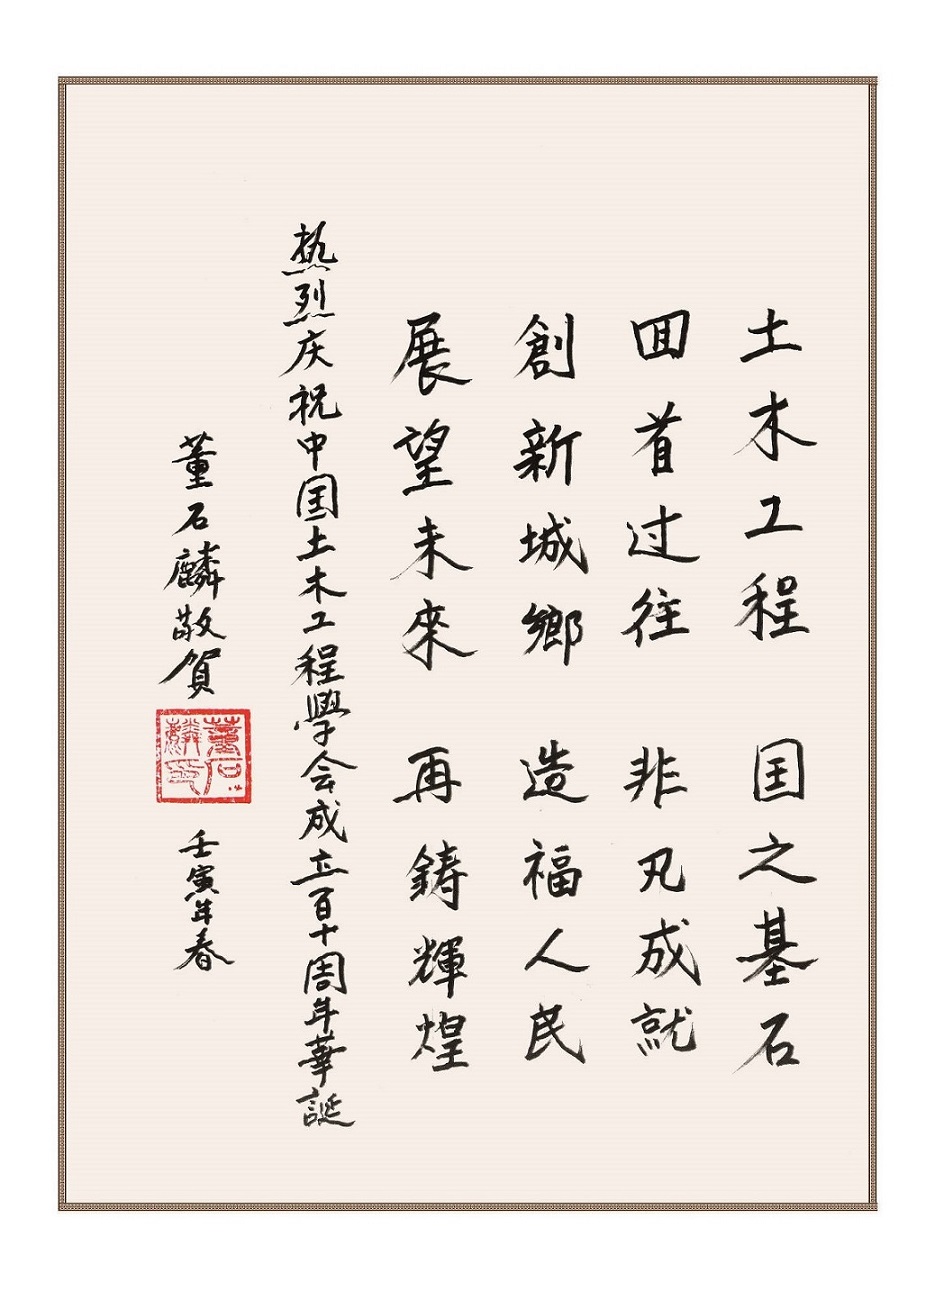 土木工程 国之基石
囬首过往 非凡成就
創新城鄉 造福人民
展望未來 再鋳輝煌
热烈庆祝中国土木工程學会成立百十周年華誕
董石麟敬賀
董石麟印
壬寅年春